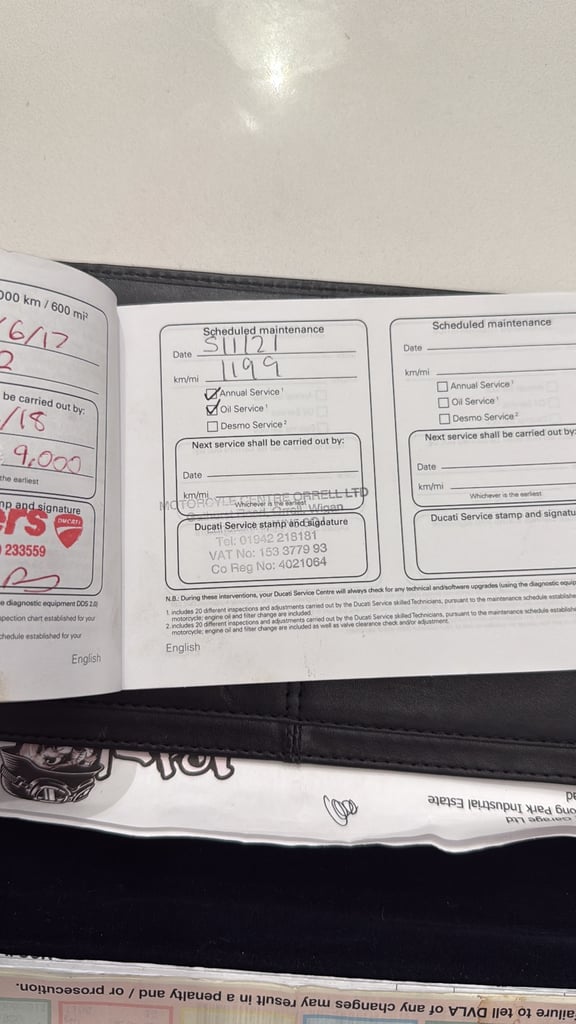 000 km / 600 mi²
/6/17
2
be carried out by:
/18
9,000
the earliest
mp and signature
ers
DUCATI
233559
e diagnostic equipment DDS 2.0)
spection chart established for your
chedule established for your
English
Scheduled maintenance
Date 5/1/21
km/mi 1199
Annual Service¹
Oil Service¹
Desmo Service²
Next service shall be carried out by:
Date
km/mi
Whichever is the earliest
MOTORCYCLE CENTRE ORRELL LTD
Orrell, Wigan
Ducati Service stamp and signature
Tel: 01942 218181
VAT No: 153 3779 93
Co Reg No: 4021064
N.B.: During these interventions, your Ducati Service Centre will always check for any technical and/software upgrades (using the diagnostic equip
1. includes 20 different inspections and adjustments carried out by the Ducati Service skilled Technicians, pursuant to the maintenance schedule establishe
motorcycle; engine oil and filter change are included.
2. includes 20 different inspections and adjustments carried out by the Ducati Service skilled Technicians, pursuant to the maintenance schedule establishe
motorcycle; engine oil and filter change are included as well as valve clearance check and/or adjustment.
English
Scheduled maintenance
Date
km/mi
Annual Service¹
Oil Service¹
Desmo Service²
Next service shall be carried out by:
Date
km/mi
Whichever is the earliest
Ducati Service stamp and signatu
Garage Ltd
ong Park Industrial Estate
Failure to tell DVLA of any changes may result in a penalty and / or prosecution.